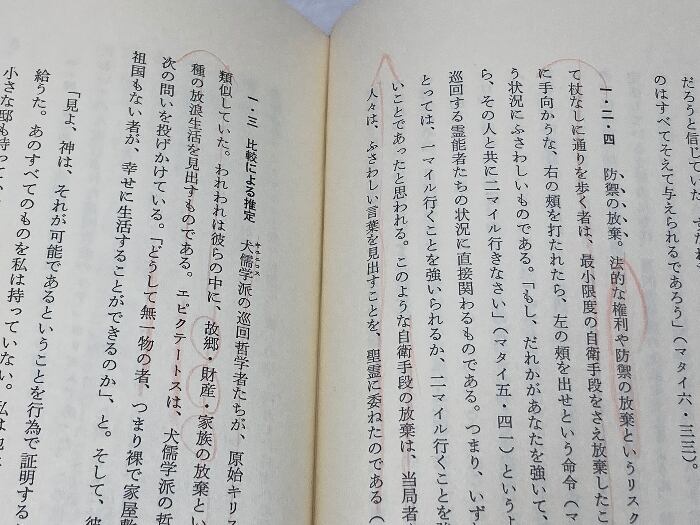 だろうと信じてい
のはすべてそえて与えられるであろう」（マタイ六・三三）。
一・二・四　防禦の放棄。法的な権利や防禦の放棄というリスク
て杖なしに通りを歩く者は、最小限度の自衛手段をさえ放棄したこ
に手向かうな、右の頬を打たれたら、左の頬を出せという命令（マ
う状況にふさわしいものである。「もし、だれかがあなたを強いて、
ら、その人と共に二マイル行きなさい」（マタイ五・四一）というよ
巡回する霊能者たちの状況に直接関わるものである。つまり、いず
とっては、一マイル行くことを強いられるか、二マイル行くことを強
いことであったと思われる。このような自衛手段の放棄は、当局者
人々は、ふさわしい言葉を見出すことを、聖霊に委ねたのである（
一・三　比較による推定　犬儒学派の巡回哲学者たちが、原始キリス
類似していた。われわれは彼らの中に、故郷・財産・家族の放棄とい
種の放浪生活を見出すものである。エピクテートスは、犬儒学派の哲
次の問いを投げかけている。「どうして無一物の者、つまり裸で家屋敷
祖国もない者が、幸せに生活することができるのか」、と。そして、彼
「見よ、神は、それが可能であるということを行為で証明する
給うた。あのすべてのものを私は持っていない。私は
小さな邸も持って